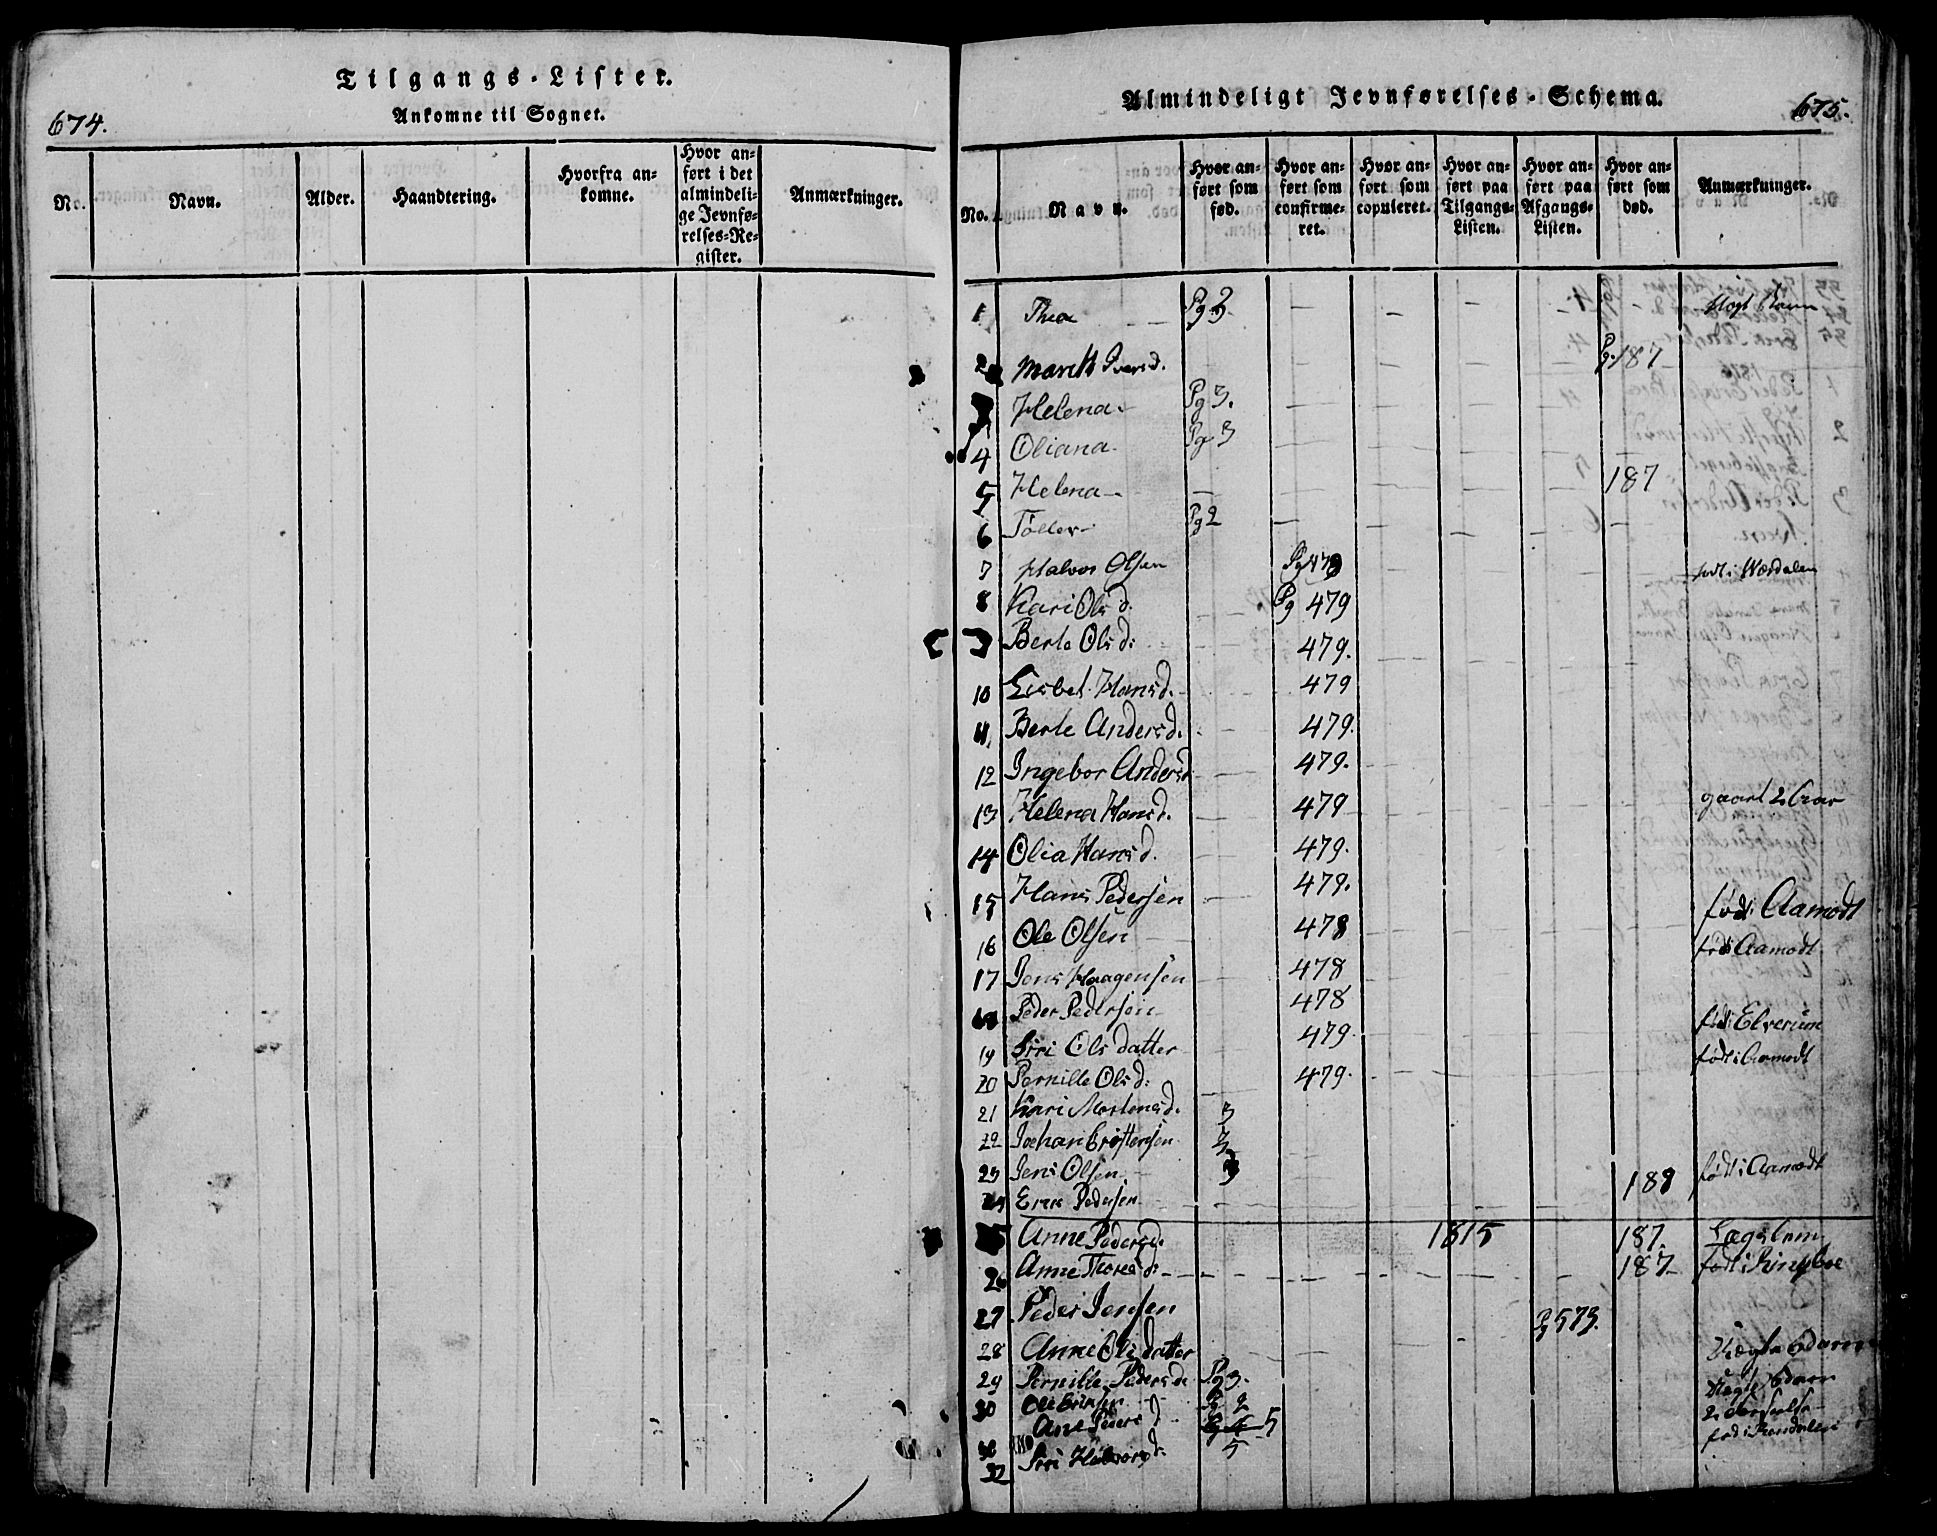 Tilgangs-Lister.
Ankomne til Sognet.
674.
No.
Navn.
Alder.
Haandtering.
Hvorfra an-
komne.
Hvor an-
ført i det
almindeli-
ge Jevnfø-
relses-Re-
gister.
Anmærkninger.
Almindeligt Jevnførelses-Schema.
675.
No.
Navn.
Hvor an-
ført som
fød.
Hvor an-
ført som
confirme-
ret.
Hvor an-
ført som
copuleret.
Hvor an-
ført paa
Tilgangs-
Listen.
Hvor an-
ført paa
Afgangs-
Listen.
Hvor an-
ført som
død.
Anmærkninger.
1 Thea Pg 3
2 Marith Iversd. Pg. 187
Helena Pg 3.
4 Oliana Pg 3
5 Helena 187
6 Töller Pg 2
7 Halvor Olsen født i
8 Kari Ols d. Pg 479
Berte Ols d: 479.
10 Lisbet Hansd. 479
11 Berte Andersd. 479.
12 Ingebor Andersd 479.
13 Helena Hansd. 479
14 Olia Hansd. 479.
15 Hans Pedersen 479. født i Aamodt
16 Ole Olsen 478 Aamodt
17 Jens Haagensen 478
Peder Pedersen 478 Elverum
19 Siri Ols datter 479. født i Aamodt
20 Pernille Ols d: 479.
21 Kari Mortensd. 3
22 Johan 3
23 Jens Olsen 3 født i Aamodt
24 Pedersen 188
Anne Pedersd. 1815 187.
26 Anne d: 187 født i Ringeboe
27 Peder Jensen Pg 573.
28 Anne Olsdatter
29 Pernille Pedersd. Pg 3.
30 Ole Pg 2
Ane Peders d 5
32 Siri Halvorsd: 5